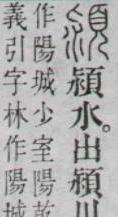 潁潁水。出潁川
作陽城少室陽乾
義引字林作陽城